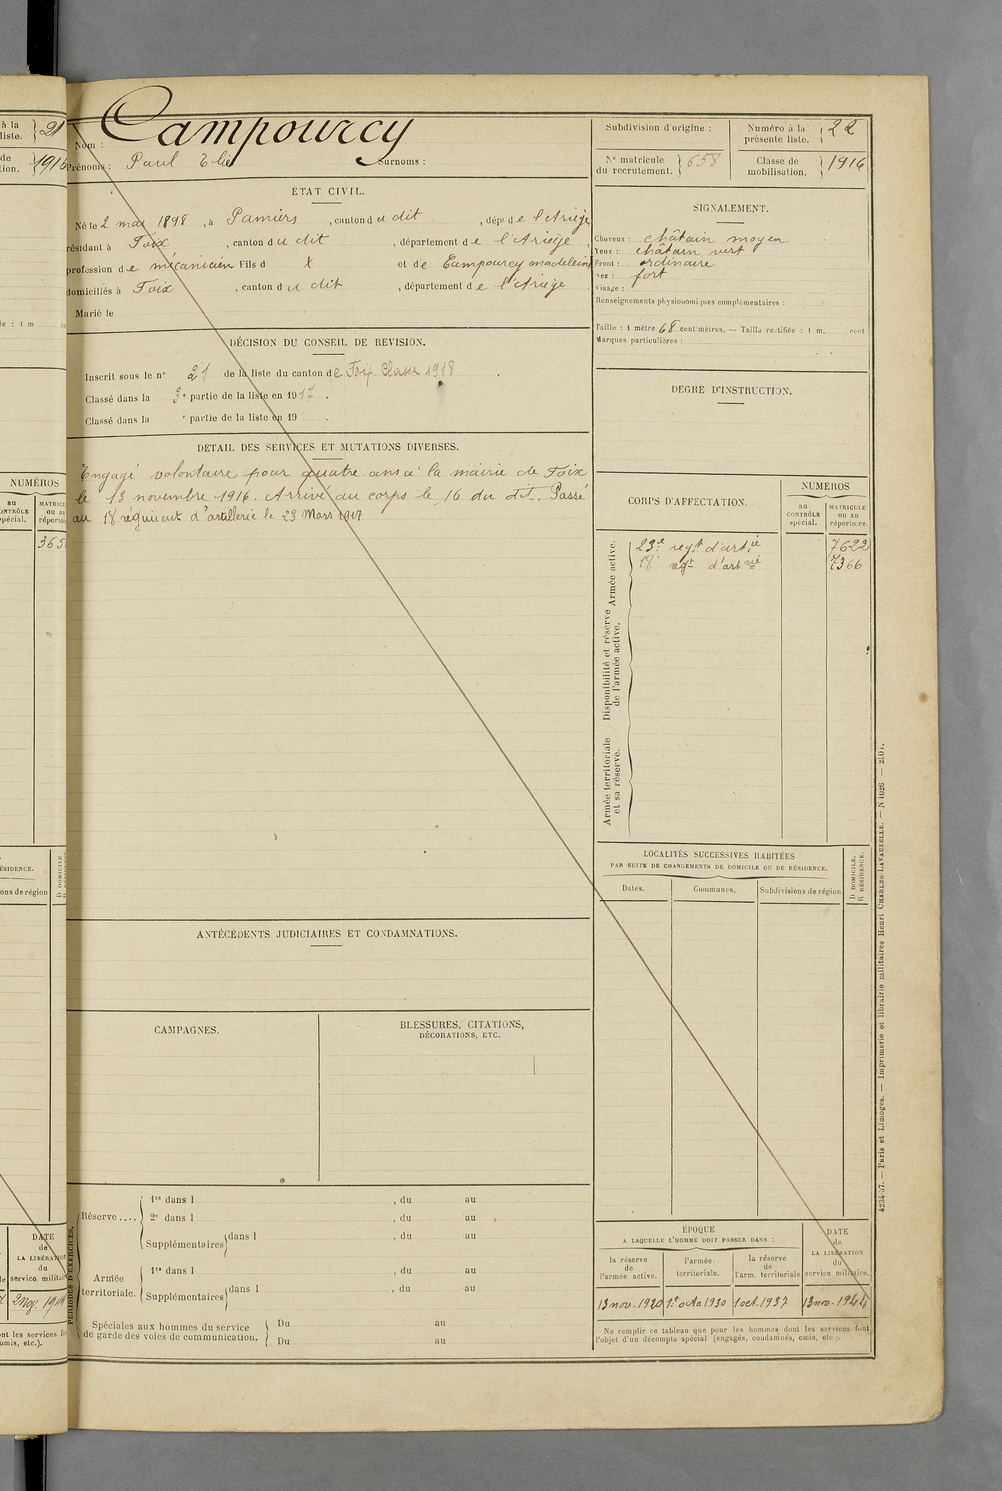 Campourcy
Nom :
Prénoms : Paul Surnoms :
ÉTAT CIVIL.
Né le 2 mai 1898, à Pamiers, canton du dit, dépt de l'Ariège,
résidant à Foix, canton du dit, département de l'Ariège,
profession de mécanicien Fils d X et de Campourcy Madeleine
domiciliés à Foix, canton du dit, département de l'Ariège.
Marié le
DÉCISION DU CONSEIL DE REVISION.
Inscrit sous le n° 21 de la liste du canton de Foix Classe 1918.
Classé dans la 3e partie de la liste en 1917.
Classé dans la e partie de la liste en 19 .
DÉTAIL DES SERVICES ET MUTATIONS DIVERSES.
Engagé volontaire pour quatre ans à la mairie de Foix
le 13 novembre 1916. Arrivé au corps le 16 du dit. Passé
au 18 régiment d'artillerie le 23 Mars 1917
ANTÉCÉDENTS JUDICIAIRES ET CONDAMNATIONS.
CAMPAGNES.
BLESSURES, CITATIONS,
DÉCORATIONS, ETC.
PÉRIODES D'EXERCICES.
Réserve....
1re dans l , du au
2e dans l , du au
Supplémentaires dans l , du au
Armée
territoriale.
1re dans l , du au
Supplémentaires dans l , du au
Spéciales aux hommes du service
de garde des voies de communication.
Du au
Du au
Subdivision d'origine :
Numéro à la
présente liste. 22
N° matricule
du recrutement. 658
Classe de
mobilisation. 1916
SIGNALEMENT.
Cheveux : châtain moyen
Yeux : châtain vert
Front : ordinaire
Nez : fort
Visage :
Renseignements physionomiques complémentaires :
Taille : 1 mètre 68 centimètres. — Taille rectifiée : 1 m. cent
Marques particulières :
DEGRÉ D'INSTRUCTION.
CORPS D'AFFECTATION.
NUMÉROS
au
CONTRÔLE
spécial.
MATRICULE
ou au
répertoire.
Armée active.
23e regt d'artie 7622
18e regt d'artie 7366
Disponibilité et réserve
de l'armée active.
Armée territoriale
et sa réserve.
LOCALITÉS SUCCESSIVES HABITÉES
PAR SUITE DE CHANGEMENTS DE DOMICILE OU DE RÉSIDENCE.
Dates.
Communes.
Subdivisions de région
D DOMICILE.
R RÉSIDENCE.
ÉPOQUE
A LAQUELLE L'HOMME DOIT PASSER DANS :
la réserve
de
l'armée active.
l'armée
territoriale.
la réserve
de
l'arm. territoriale
DATE
de
LA LIBÉRATION
du
service militaire.
13 nov. 1920
1er octe 1930
1 oct. 1937
13 nov. 1944
Ne remplir ce tableau que pour les hommes dont les services font
l'objet d'un décompte spécial (engagés, condamnés, omis, etc.).
Paris et Limoges. — Imprimerie et librairie militaires Henri CHARLES-LAVAUZELLE.
à la
liste. 21
de
tion. 1916
NUMÉROS
au
CONTRÔLE
spécial.
MATRICULE
ou au
répertoire
RÉSIDENCE.
ons de région
DATE
de
LA LIBÉRATION
du
service militaire
ont les services font
omis, etc.).